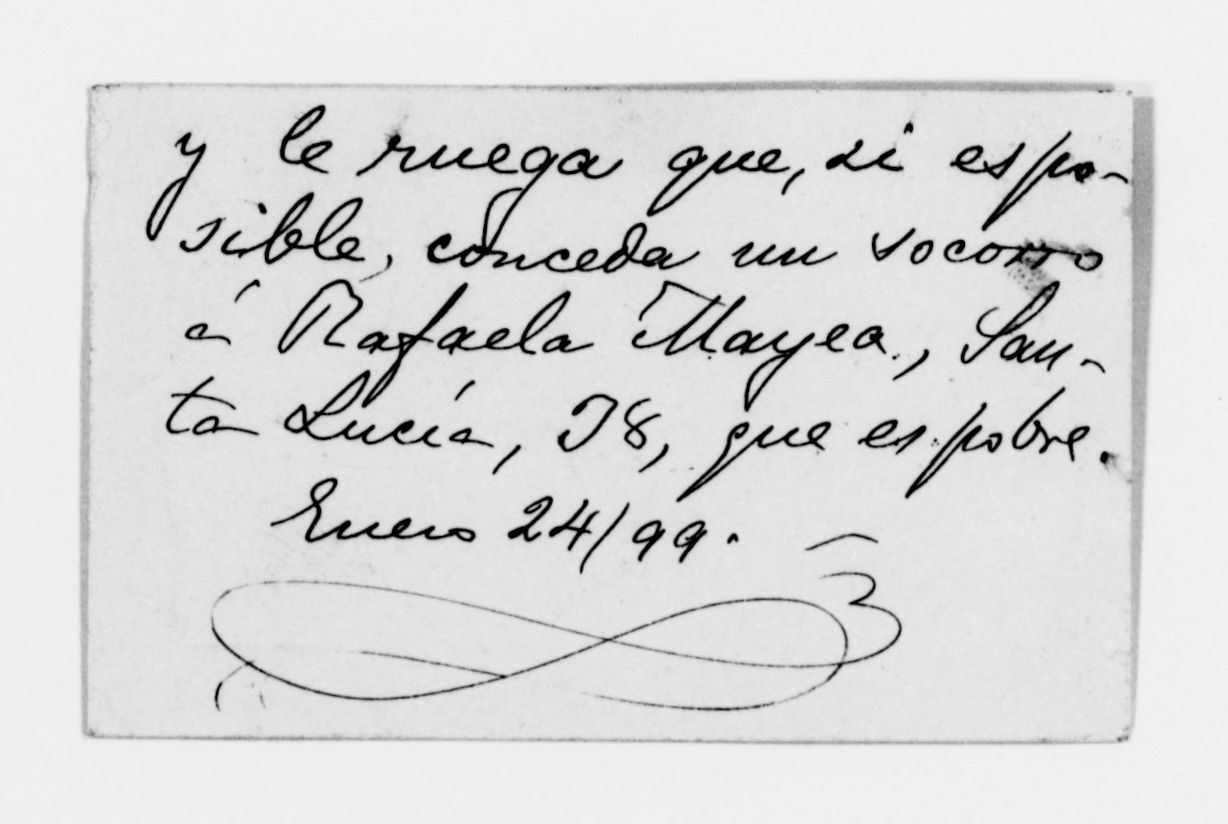 y le ruega que, si es po-
sible, conceda un socorro
á Rafaela Mayea, San-
ta Lucía, 38, que es pobre.
Enero 24/99.